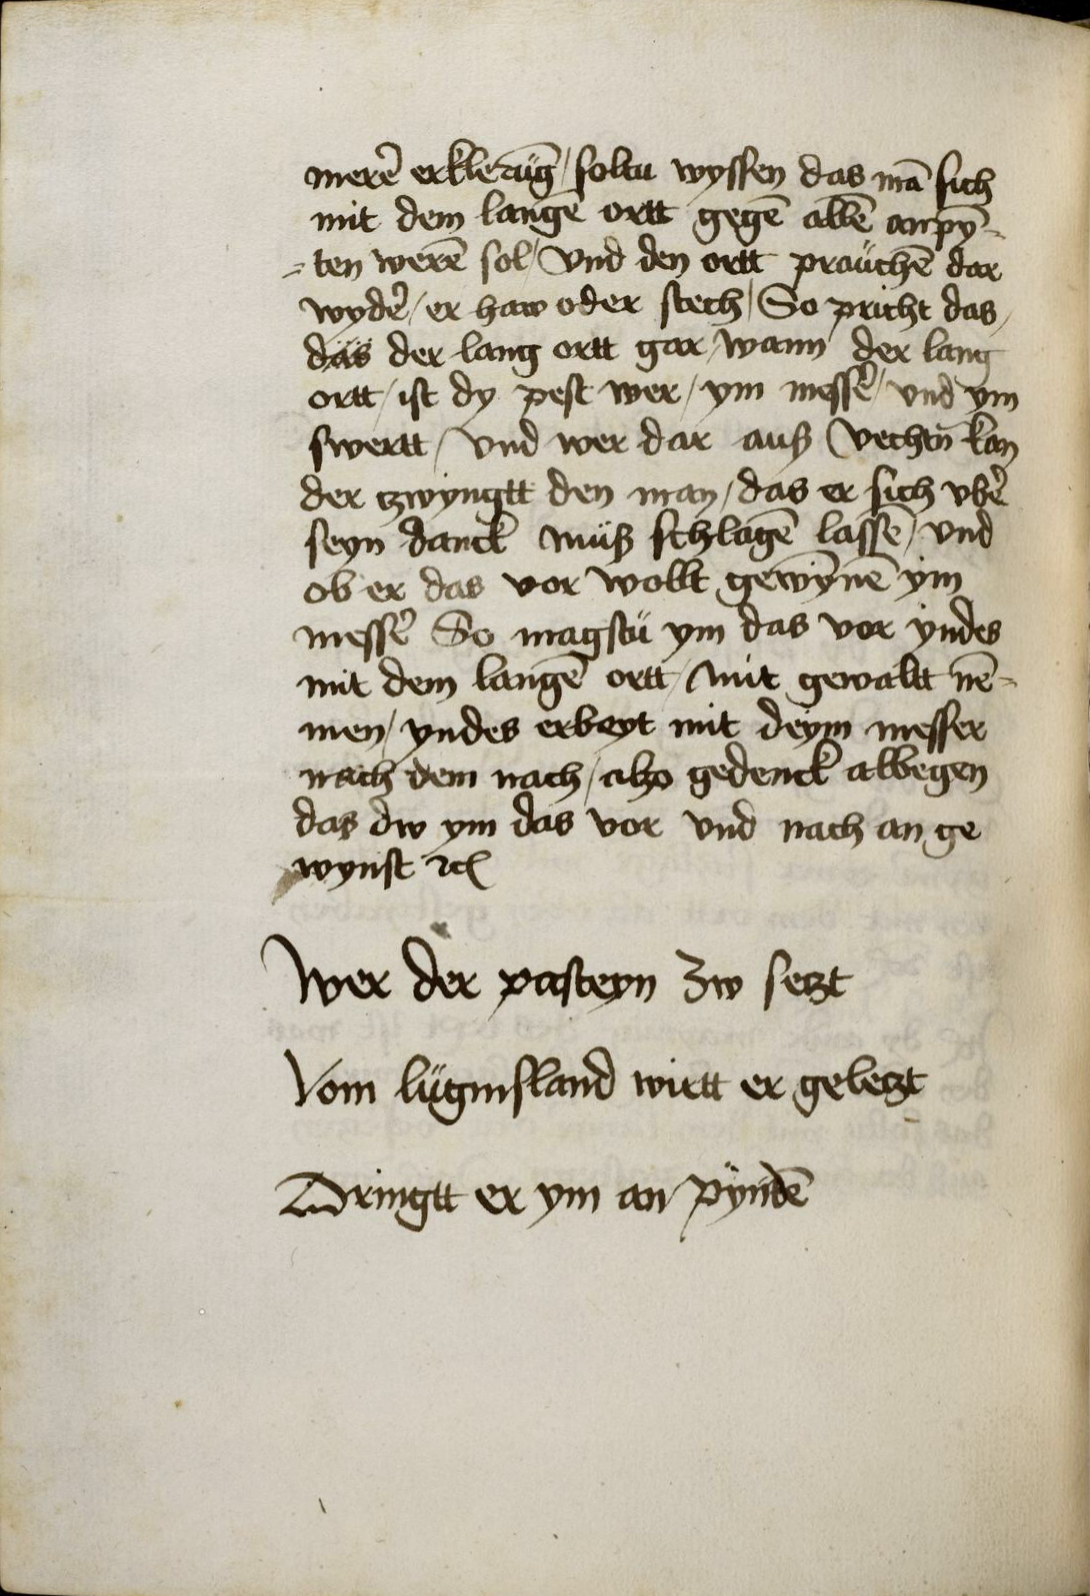 merē erklerūg / soltu wyssen das mā sich
mit dem langē ortt gegē allē anpȳ-
-ten werē sol / Vnd den ortt praüchē dar
wyder̄ / er haw oder stech / So pricht das /
das der lang ortt gar / wann der lang
ortt / ist dy pest wer / ym messer̄ / vnd ym
swertt / Vnd wer dar auß vechtn̄ kan
der tzwyngtt den man / das er sich vber̄
seyn danck müß schlagē lassē / vnd
ob er das vor wollt gewȳnē ym
messer̄ So magstü ym das vor yndes
mit dem langē ortt / mit gewaltt nē-
men / yndes erbeyt mit deym messer
nach dem nach / also gedenck allwegen
das dw ym das vor vnd nach an ge
wynst ⁊c
Wer der pasteyn zw setzt
Vom lüginsland wirtt er geletzt
Dringtt er ym an pÿndē